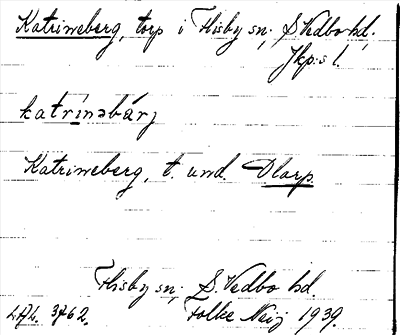 Katrineberg, torp i Flisby sn, S. Vedbo hd,
Jkp:s l.
katrinəbärj
Katrineberg, t. und. Olarp.
Flisby sn, S. Vedbo hd.
L.A.L. 3762. Folke Neij 1939.